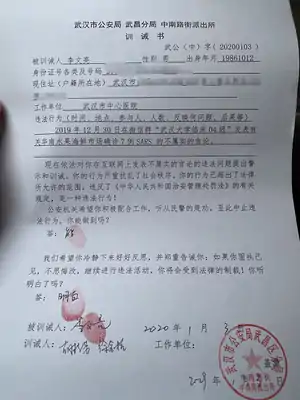 武汉市公安局 武昌分局 中南路街派出所
训 诫 书
武公(中)字(20200103)
被训诫人 李文亮 性别 男 出身年月 19861012
身份证号各类及号码
现住址(户籍所在地) 武汉市
工作单位 武汉市中心医院
违法行为(时间、地点、参与人、人数、反映何问题、后果等)
2019年12月30日在微信群"武汉大学临床04级"发表有
关华南水果海鲜市场确诊7例SARS的不属实的言论。
现在依法对你在互联网上发表不属实的言论的违法问题提出警
示和训诫。你的行为严重扰乱了社会秩序。你的行为已超出了法律
所允许的范围,违反了《中华人民共和国治安管理处罚法》的有关
规定,是一种违法行为!
公安机关希望你积极配合工作,听从民警的规劝,至此中止违
法行为。你能做到吗?
答: 能
我们希望你冷静下来好好反思,并郑重告诫你:如果你固执己
见,不思悔改,继续进行违法活动,你将会受到法律的制裁!你听
明白了吗?
答: 明白
被训诫人: 李文亮 2020年 1月 3
训诫人: 工作单位:
武汉市公安局武昌区分局